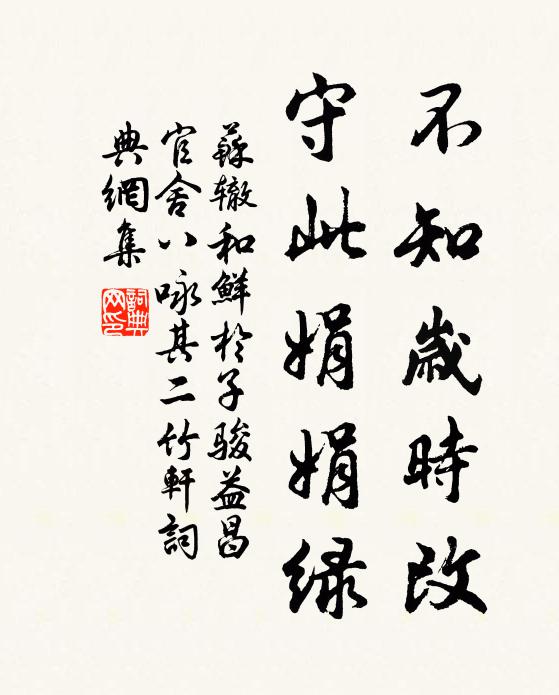 不知歲時改
守此娟娟綠
蘇轍和鮮於子駿益昌
官舍八咏其二竹軒詞
典網集
詞典網印